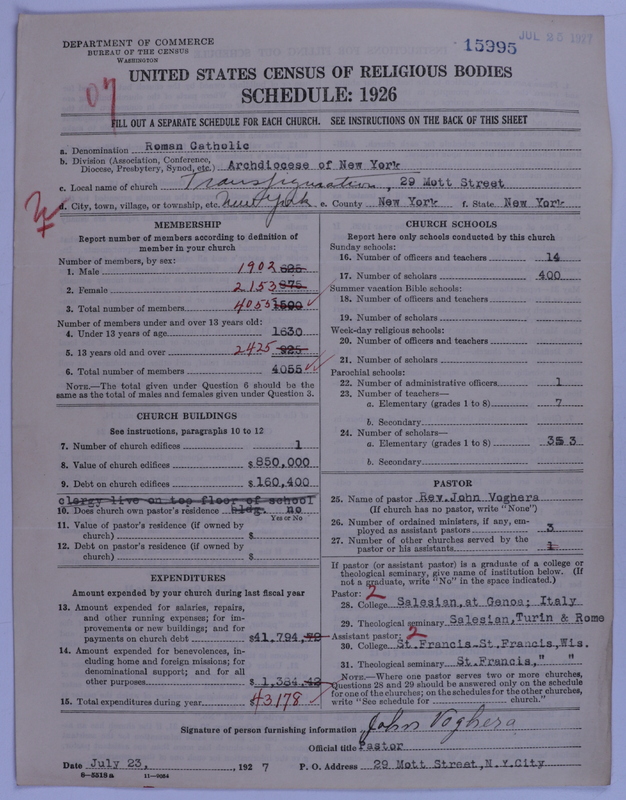 DEPARTMENT OF COMMERCE
BUREAU OF THE CENSUS
WASHINGTON
15995
JUL 26 1927
07
UNITED STATES CENSUS OF RELIGIOUS BODIES
SCHEDULE: 1926
FILL OUT A SEPARATE SCHEDULE FOR EACH CHURCH. SEE INSTRUCTIONS ON THE BACK OF THIS SHEET
a. Denomination Roman Catholic
b. Division (Association, Conference, Diocese, Presbytery, Synod, etc.) Archdiocese of New York
c. Local name of church Transfiguration, 29 Mott Street
d. City, town, village, or township, etc. New York e. County New York f. State New York
MEMBERSHIP
Report number of members according to definition of
member in your church
Number of members, by sex:
1. Male 1902 625
2. Female 2153 875
3. Total number of members 4055 1500
Number of members under and over 13 years old:
4. Under 13 years of age 1630
5. 13 years old and over 2425 925
6. Total number of members 4055
NOTE.—The total given under Question 6 should be the
same as the total of males and females given under Question 3.
CHURCH BUILDINGS
See instructions, paragraphs 10 to 12
7. Number of church edifices 1
8. Value of church edifices $850,000
9. Debt on church edifices $160,400
clergy live on top floor of school
10. Does church own pastor's residence bldg. no
Yes or No
11. Value of pastor's residence (if owned by
church) $
12. Debt on pastor's residence (if owned by
church) $
EXPENDITURES
Amount expended by your church during last fiscal year
13. Amount expended for salaries, repairs,
and other running expenses; for im-
provements or new buildings; and for
payments on church debt $41,794.72
14. Amount expended for benevolences, in-
cluding home and foreign missions; for
denominational support; and for all
other purposes $1,384.42
15. Total expenditures during year $43178
CHURCH SCHOOLS
Report here only schools conducted by this church
Sunday schools:
16. Number of officers and teachers 14
17. Number of scholars 400
Summer vacation Bible schools:
18. Number of officers and teachers
19. Number of scholars
Week-day religious schools:
20. Number of officers and teachers
21. Number of scholars
Parochial schools:
22. Number of administrative officers 1
23. Number of teachers—
a. Elementary (grades 1 to 8) 7
b. Secondary
24. Number of scholars—
a. Elementary (grades 1 to 8) 353
b. Secondary
PASTOR
25. Name of pastor Rev.John Voghera
(If church has no pastor, write "None")
26. Number of ordained ministers, if any, em-
ployed as assistant pastors 3
27. Number of other churches served by the
pastor or his assistants 1
If pastor (or assistant pastor) is a graduate of a college or
theological seminary, give name of institution below. (If
not a graduate, write "No" in the space indicated.)
Pastor: 2
28. College Salesian, at Genoa; Italy
29. Theological seminary Salesian, Turin & Rome
Assistant pastor: 2
30. College St.Francis-St.Francis, Wis.
31. Theological seminary St.Francis, " "
NOTE.—Where one pastor serves two or more churches,
Questions 28 and 29 should be answered only on the schedule
for one of the churches; on the schedules for the other churches,
write "See schedule for church."
Signature of person furnishing information John Voghera
Official title Pastor
Date July 23, 1927 P. O. Address 29 Mott Street, N.Y.City
6-5518a 11-9054